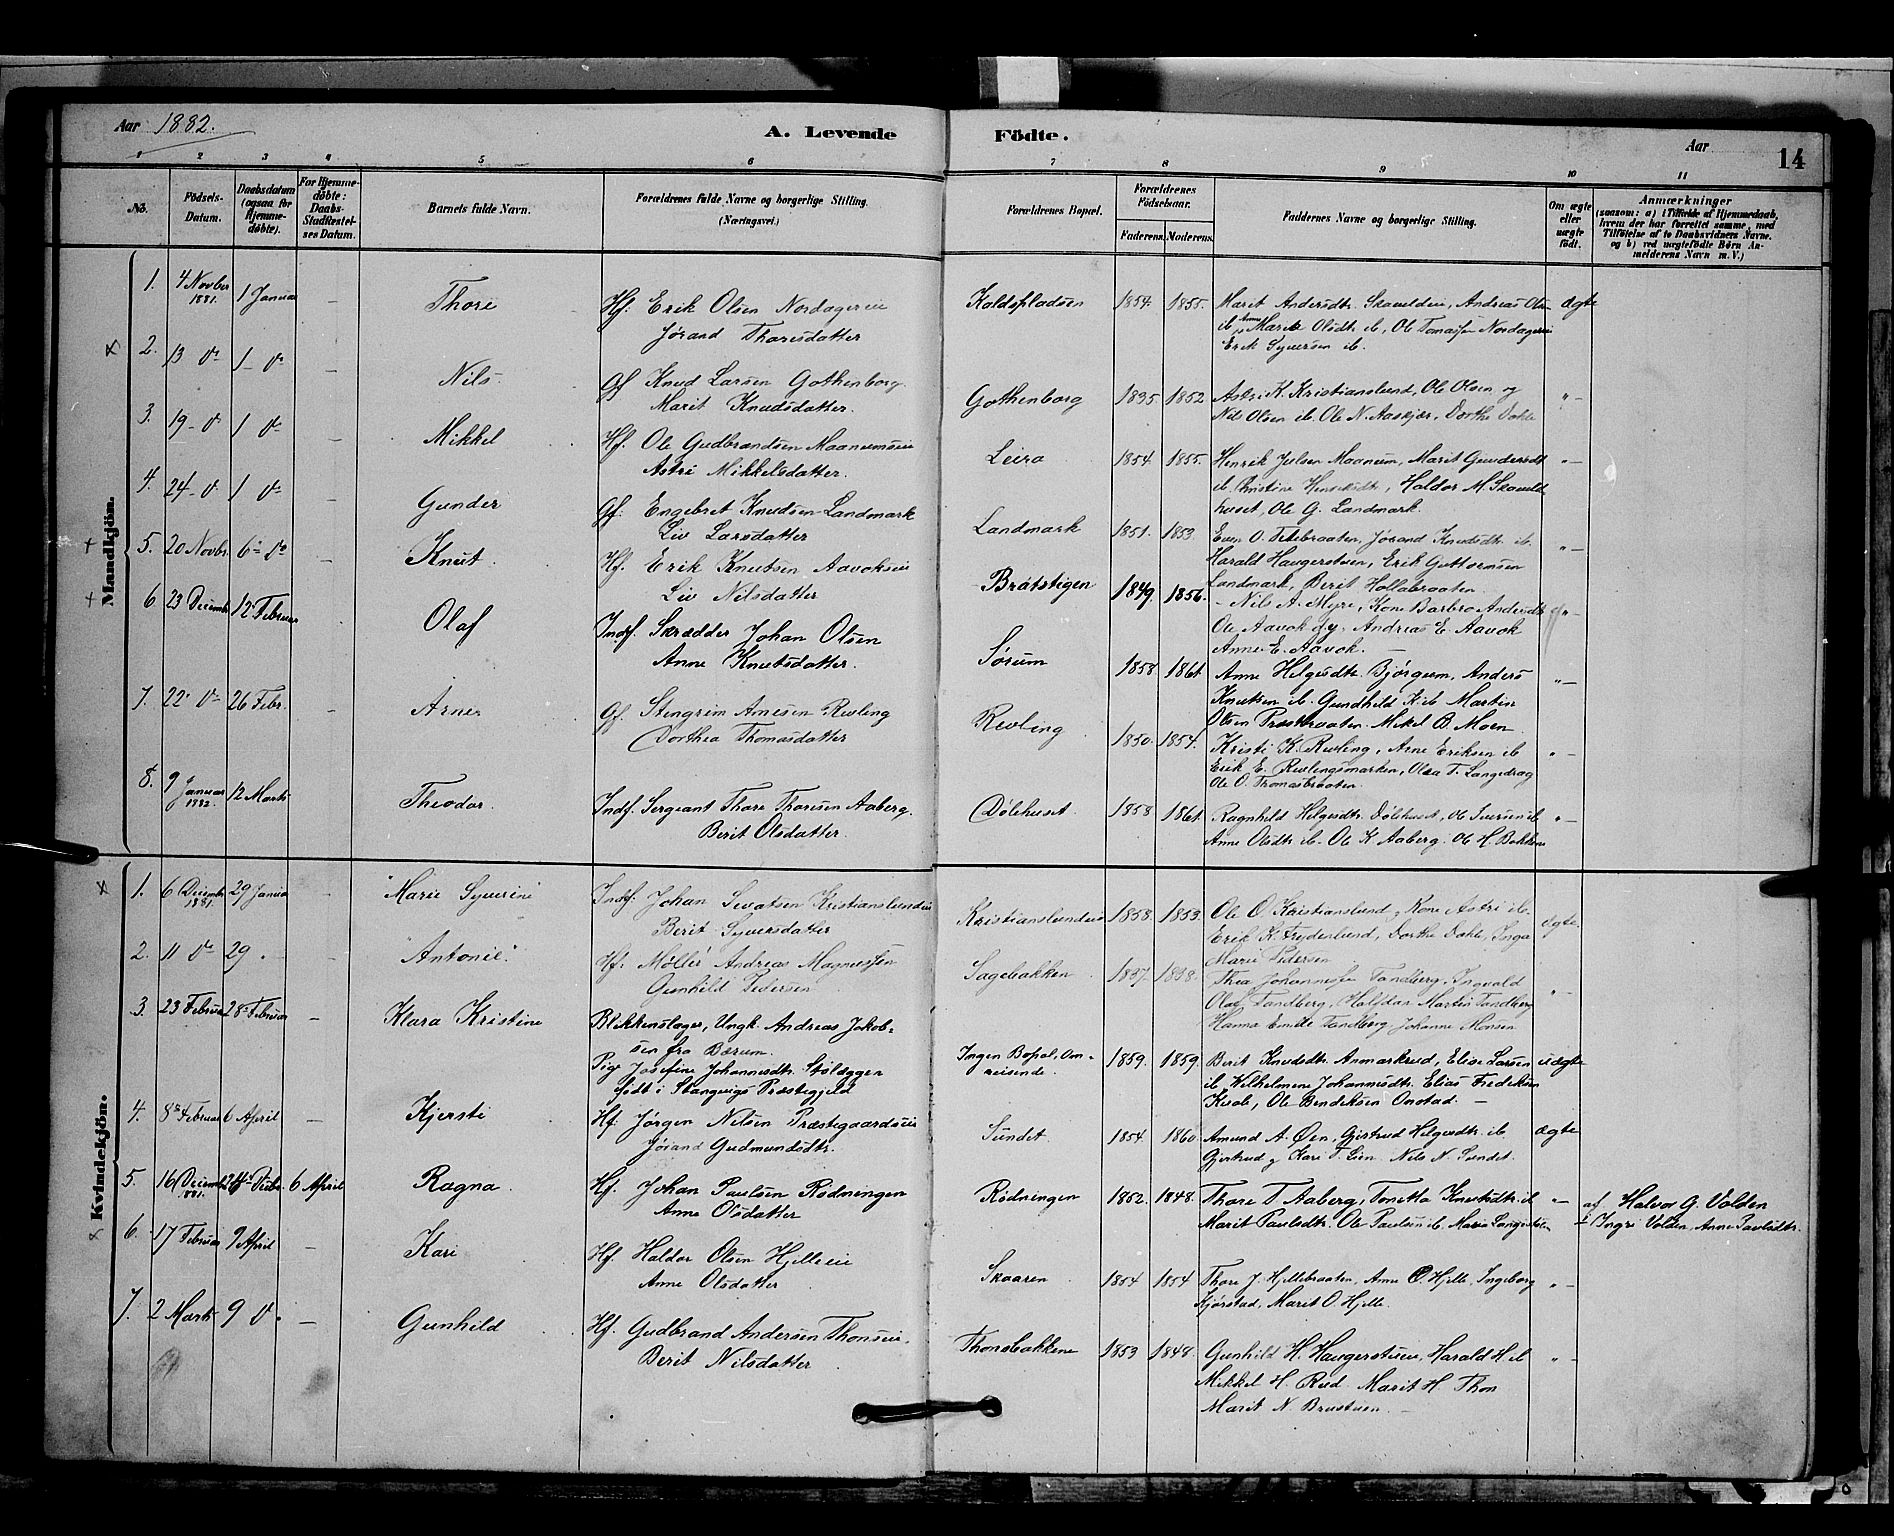 Aar 1882.
A. Levende Födte.
Aar
14
1 2 3 4 5 6 7 8 9 10 11
No.
Födsels-Datum.
Daabsdatum (ogsaa for Hjemme-döbte).
For Hjemme-döbte: Daabs-Stadfæstel-ses Datum.
Barnets fulde Navn.
Forældrenes fulde Navne og borgerlige Stilling. (Næringsvei.)
Forældrenes Bopæl.
Forældrenes Födselsaar.
Faderens. Moderens.
Faddernes Navne og borgerlige Stilling.
Om ægte eller uægte födt.
Anmærkninger
(saasom: a) i Tilfælde af Hjemmedaab,
hvem der har forrettet samme, med
Tilföielse af to Daabsvidners Navne,
og b) ved uægtefödte Börn An-
melderens Navn m. V.)
Mandkjön.
1. 4 Novbr 1881. 1 Januar — Thore Hf. Erik Olsen Nordagereie
Jørand Thoresdatter
Koldspladsen 1854. 1855. Marit Andersdtr. Skavelden, Andreas Olsen
ib Anne Marie Olsdtr ib, Ole Tomasen Nordagereie
Erik Syversen ib.
ægte
2. 13 do 1 do — Nils. Gf Knud Larsen Gothenborg.
Marit Knudsdatter.
Gothenborg 1835 1852 Astri K. Kristianslund, Ole Olsen og
Nils Olsen ib. Ole N. Aaskjær, Dorthe Dohle
"—
3. 19 do 1 do — Mikkel Hf. Ole Gudbrandsen Maanumseie
Astri Mikkelsdatter.
Leira 1854 1855. Henrik Julsen Maanum, Marit Gundersdt
ib. Kristine Hensesdtr, Haldor M. Skaveld
huset, Ole G. Landmark.
"—
4. 24 do 1 do — Gunder Gf. Engebret Knudsen Landmark
Liv Larsdatter
Landmark 1851. 1853. Even O. Tildebraaten, Jørand Knudsdtr ib.
Harald Haugerstuen, Erik Guttormsen
Landmark, Berit Hollabraaten.
"—
5. 20 Novbr. 6te do — Knut. Hf. Erik Knutsen Aavokseie
Liv Nilsdatter
Bratstigen 1849. 1856. Nils A. Myre, Kone Barbro Andersdtr
Ole Aavok gg. Andreas E. Aavok
Anne E. Aavok. —
"—
6 23 December 12 Februar Olaf Indf. Skrædder Johan Olsen
Anne Knutsdatter.
Sørum 1858 1861. Anne Helgesdtr. Bjørgum, Anders
Knutsen ib. Gundhild K. ib Martin
Olsen Præstbraaten. Mikel B. Moen.
"—
7. 22 do 26 Febr. — Arne Gf. Stengrim Arnesen Revling
Dorthea Thomasdatter
Revling 1850. 1854. Kristi K. Revling, Arne Eriksen ib
Erik E. Revlingsmarken, Olea T. Langedrag
Ole O. Thomasbraaten.
"—
8. 9 Januar 1882. 12 Marts Theodor. Indf. Sergeant Thore Thoresen Aaberg.
Berit Olsdatter.
Dølehuset. 1858 1861. Ragnhild Helgesdtr Dølehuset, Ole Iversen ib
Anne Olsdtr ib. Ole K. Aaberg. Ole H. Bakken
"—
Kvindekjön.
1. 6 Decembr 1881. 29 Januar — "Marie Syverine" Indf. Johan Sevatsen Kristianslundeie
Berit Syversdatter
Kristianslundeie 1858. 1853. Ole O. Kristianslund, Kone Astri ib.
Erik K. Frydenlund, Dorthe Dohle, Inga
Marie Pedersen
ægte
2. 11 do 29 — "Antonie" Hf. Møller Andreas Magnussen
Gunhild Pedersen
Sagebakken 1837. 1838. Thea Johannesen Tandberg, Ingvald
Olaf Tandberg, Halfdan Martin Tandberg
Hanna Emilie Tandberg Johanne Monsen
"—
3. 23 Februar 28 Februar — Klara Kristine Blikkenslager, Ungk. Andreas Jakob-
sen fra Bærum.
Pige Josefine Johannesdtr. Stølægger
født i Stangvigs Præstegjeld
Ingen Bopæl, Om-
reisende. 1859. 1859. Berit Knudsdtr. Aanmarkrud, Elise Larsen
ib, Wilhelmine Johannesdtr. Elias Fredriksen
Kvale, Ole Bendiksen Onstad. —
uægte
4. 8de Februar 6 April — Kjersti Hf. Jørgen Nilsen Præstegaardseie
Jørand Gudmundsdtr.
Sundet. 1854. 1860 Amund A. Øen, Gjertrud Helgesdtr. ib.
Gjertrud og Kari T. Lien Nils N. Sundet.
ægte
5. 16 December 1881. 24 Decbr. 6 April Ragna. Hf. Johan Paulsen Rødningen
Anne Olsdatter
Rødningen 1852. 1848. Thore T. Aaberg, Tonetta Knutsdtr. ib
Marit Paulsdtr. Ole Paulsen ib. Marie Langestuen
"— af Halvor G. Volden
Ingri Volden, Anne Paulsdtr.
6. 17 Februar 9 April — Kari Hf. Haldor Olsen Hjelleeie
Anne Olsdatter
Skaaren 1854 1854 Thore J. Hjellebraaten, Anne O. Hjelle, Ingeborg
Kjørstad, Marit O. Hjelle.
"—
7. 2 Marts 9 do — Gunhild Hf. Gudbrand Andersen Thonseie.
Berit Nilsdatter
Thonsbakkene 1853 1848. Gunhild H. Haugerstuen, Harald H. ib
Mikkel H. Rud. Marit H. Thon
Marit N. Brustuen. —
"—